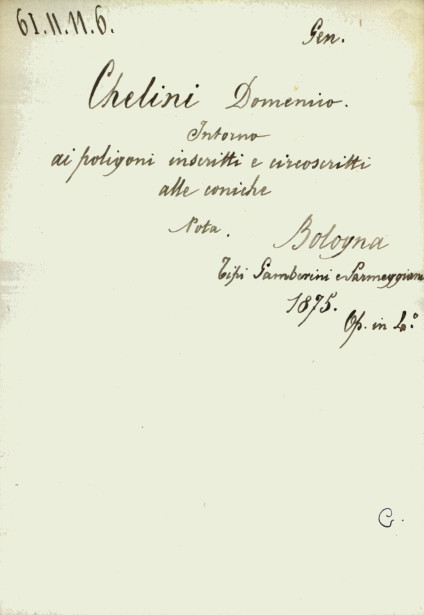 61.11.11.6.
Gen.
Chelini Domenico.
Intorno
ai poligoni inscritti e circoscritti
alle coniche
Nota.
Bologna
Tipi Gamberini e Parmeggiani
1875.
Op. in 4.°
G.